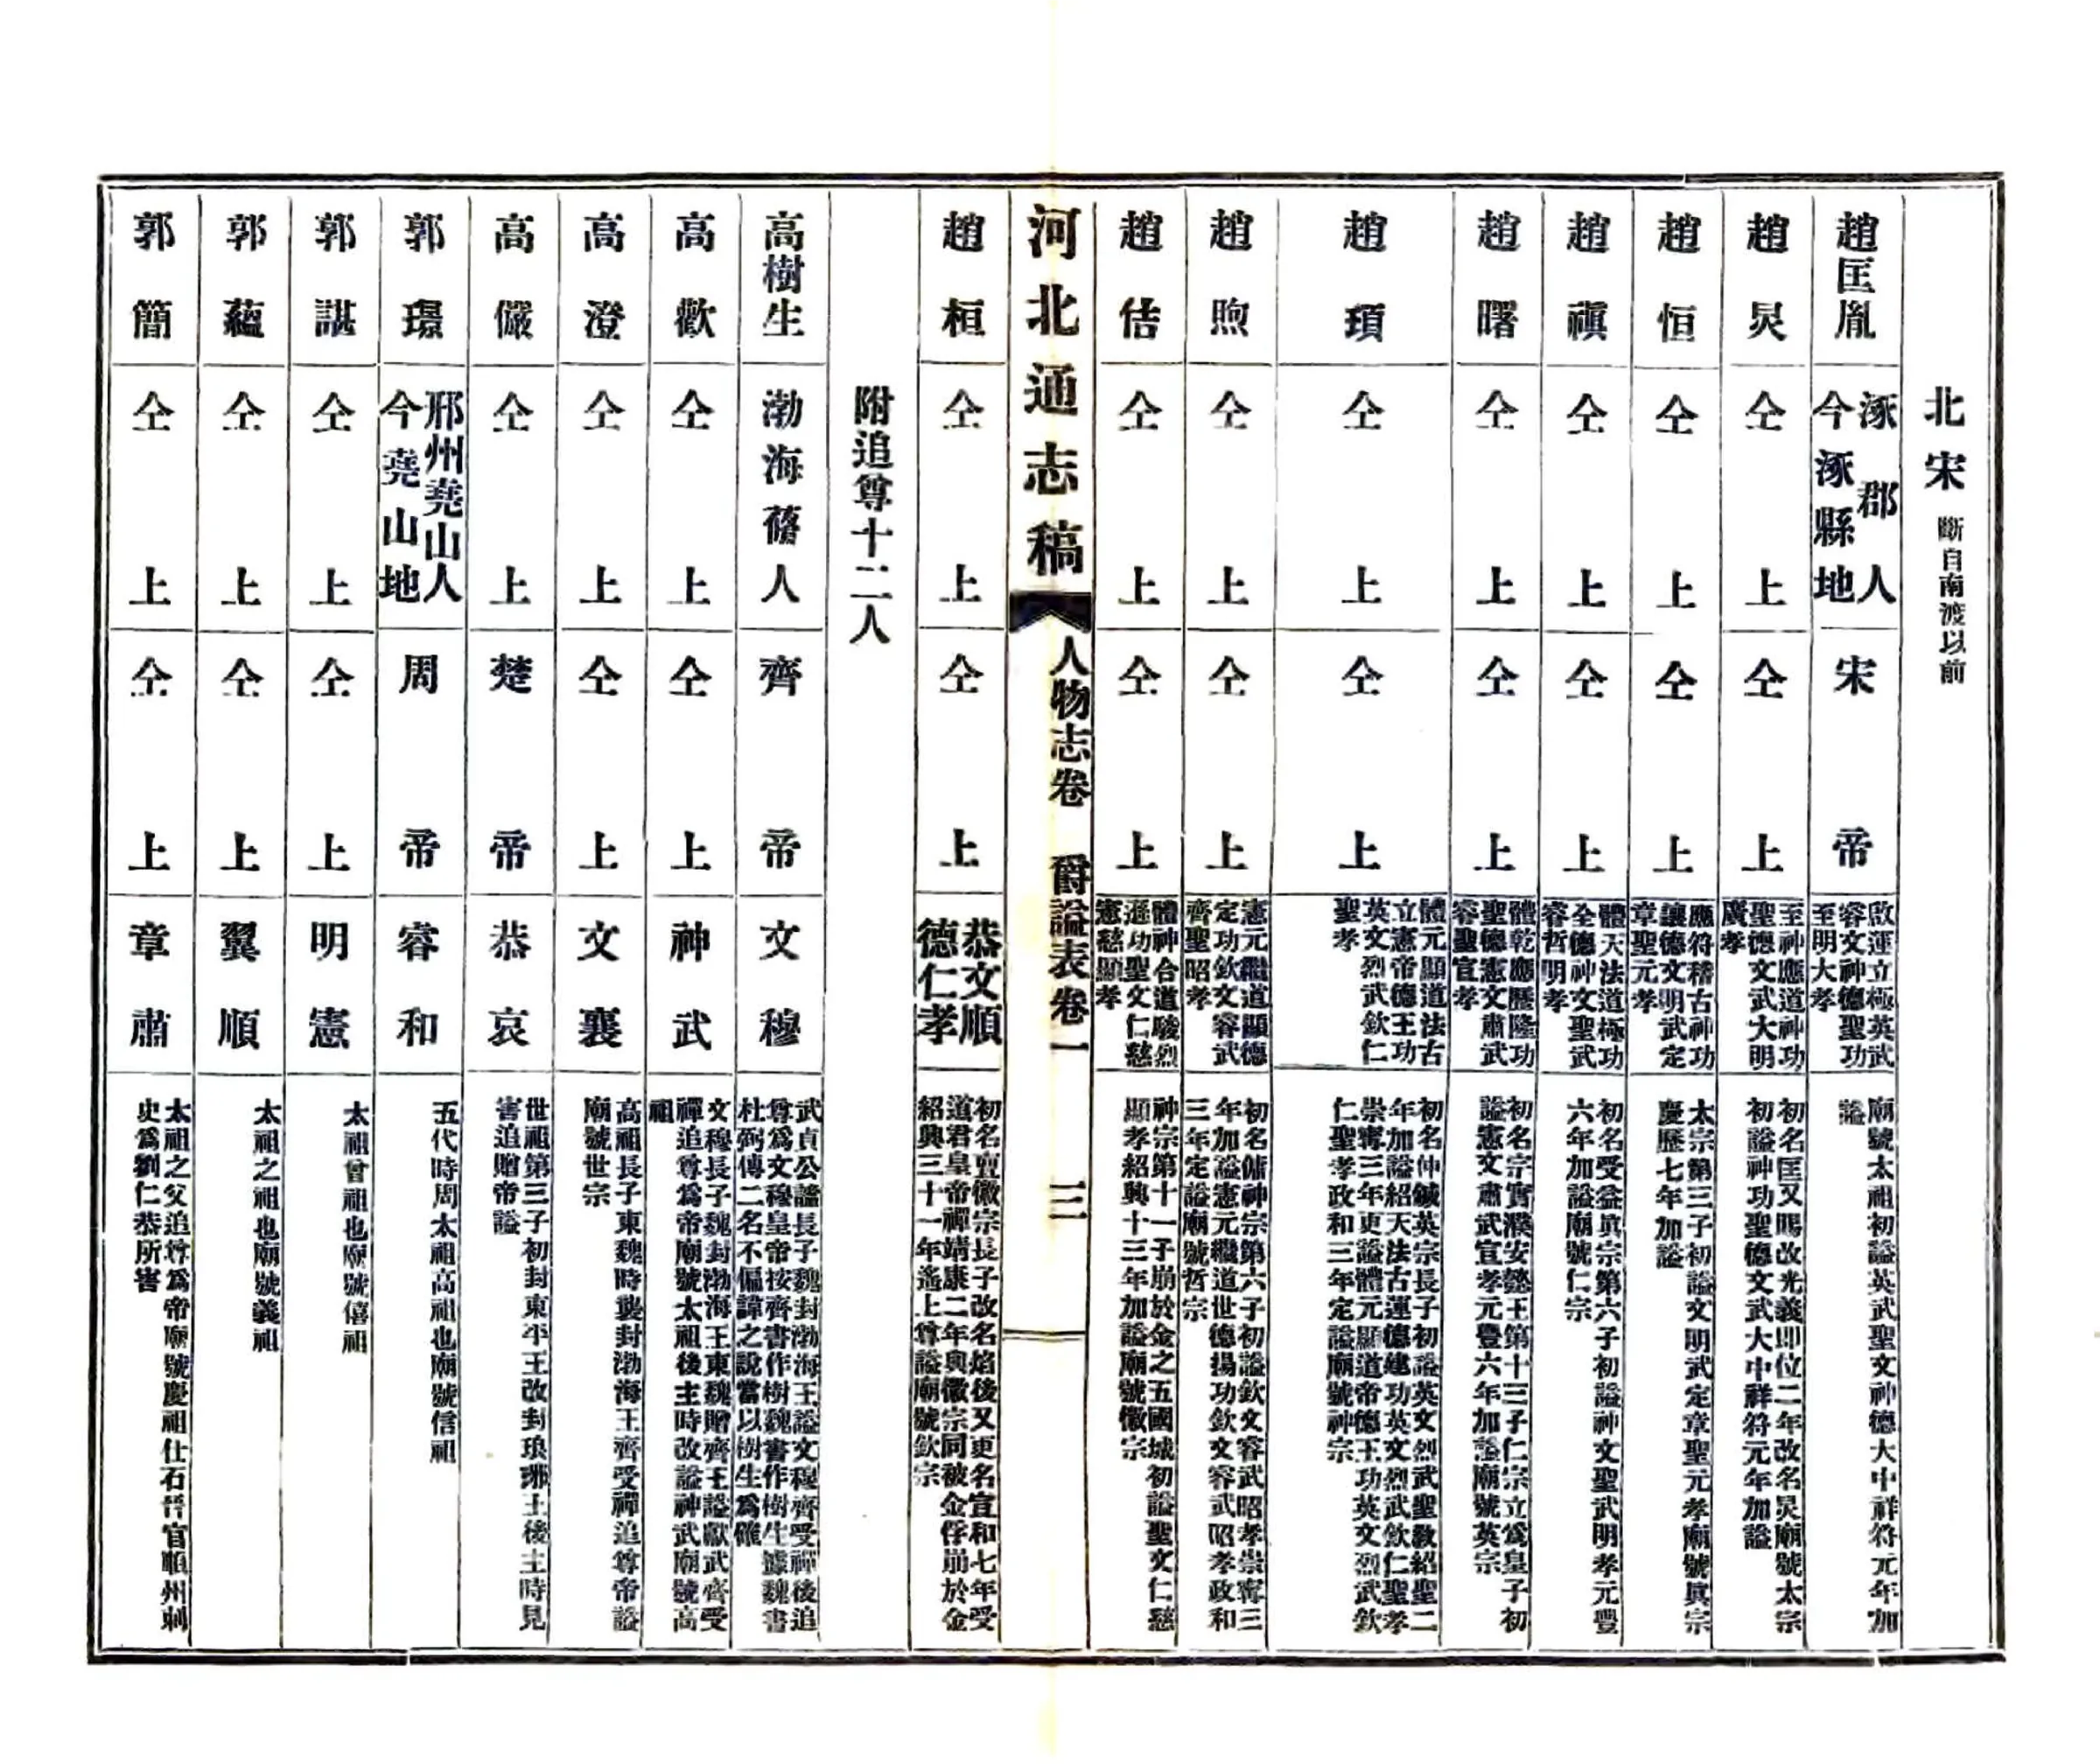 北宋 斷自南渡以前
趙匡胤
涿郡人
今涿縣地
宋帝
啟運立極英武
睿文神德聖功
至明大孝
廟號太祖初謚英武聖文神德大中祥符元年加
謚
趙炅
仝上
仝上
至神應道神功
聖德文武大明
廣孝
初名匡乂賜改光義即位二年改名炅廟號太宗
初謚神功聖德文武大中祥符元年加謚
趙恒
仝上
仝上
應符稽古神功
讓德文明武定
章聖元孝
太宗第三子初謚文明武定章聖元孝廟號真宗
慶歷七年加謚
趙禎
仝上
仝上
體天法道極功
全德神文聖武
睿哲明孝
初名受益真宗第六子初謚神文聖武明孝元豐
六年加謚廟號仁宗
趙曙
仝上
仝上
體乾應歷隆功
聖德憲文肅武
睿聖宣孝
初名宗實濮安懿王第十三子仁宗立為皇子初
謚憲文肅武宣孝元豐六年加謚廟號英宗
趙頊
仝上
仝上
體元顯道法古
立憲帝德王功
英文烈武欽仁
聖孝
初名仲鍼英宗長子初謚英文烈武聖教紹聖二
年加謚紹天法古運德建功英文烈武欽仁聖孝
崇寧三年更謚體元顯道帝德王功英文烈武欽
仁聖孝政和三年定謚廟號神宗
趙煦
仝上
仝上
憲元繼道顯德
定功欽文睿武
齊聖昭孝
初名傭神宗第六子初謚欽文睿武昭孝崇寧三
年加謚憲元繼道世德揚功欽文睿武昭孝政和
三年定謚廟號哲宗
趙佶
仝上
仝上
體神合道駿烈
遜功聖文仁慈
憲慈顯孝
神宗第十一子崩於金之五國城初謚聖文仁慈
顯孝紹興十三年加謚廟號徽宗
河北通志稿 人物志卷 爵謚表卷一 三
趙桓
仝上
仝上
恭文順
德仁孝
初名亶徽宗長子改名烜後又更名宣和七年受
道君皇帝禪靖康二年與徽宗同被金俘崩於金
紹興三十一年遙上尊謚廟號欽宗
附追尊十二人
高樹生
渤海蓨人
齊帝
文穆
武貞公謐長子魏封渤海王謚文穆齊受禪後追
尊為文穆皇帝按齊書作樹魏書作樹生據魏書
杜弼傳二名不偏諱之說當以樹生為確
高歡
仝上
仝上
神武
文穆長子魏封渤海王東魏贈齊王謚獻武齊受
禪追尊為帝廟號太祖後主時改謚神武廟號高
祖
高澄
仝上
仝上
文襄
高祖長子東魏時襲封渤海王齊受禪追尊帝謚
廟號世宗
高儼
仝上
楚帝
恭哀
世祖第三子初封東平王改封琅琊王後主時見
害追贈帝謚
郭璟
邢州堯山人
今堯山地
周帝
睿和
五代時周太祖高祖也廟號信祖
郭諶
仝上
仝上
明憲
太祖曾祖也廟號僖祖
郭蘊
仝上
仝上
翼順
太祖之祖也廟號義祖
郭簡
仝上
仝上
章肅
太祖之父追尊為帝廟號慶祖仕石晉官順州刺
史為劉仁恭所害